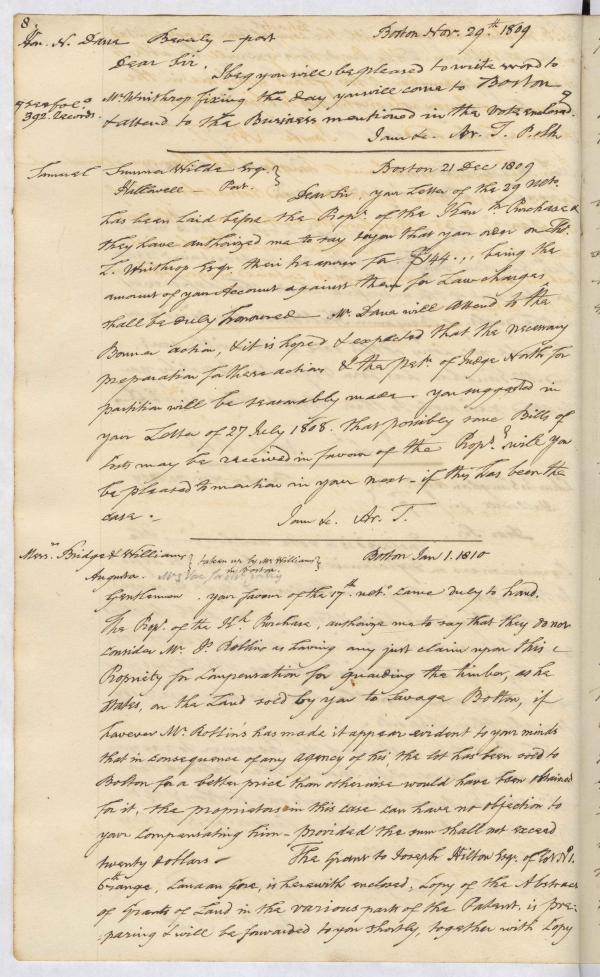 8.
Hon. N. Dana Beverly - post Boston Nov. 29.th 1809
Dear Sir.
I beg you will be pleased to write word to
Mr. Winthrop fixing the day you will come to Boston
392. Records.
& attend to the Business mentioned in the Vote enclosed.
I am &c. Ar. T. P. Clk
Samuel Sumner Wilde Esqr. Boston 21 Dec 1809
Hallowell - Post.
Dear Sir, your Letter of the 29 Ulto.
has been laid before the Propr. of the Kenn. Purchase &
they have authorized me to say to you that your order on Th.
L. Winthrop Esqr. their treasurer for $144.,, being the
amount of your Account against them for Law charges
shall be duly honoured - Mr. Dana will attend to the
Bonner action, & it is hoped & expected that the necessary
preparation for these actions & the Petn. of Judge North for
partition will be seasonably made. you suggested in
your Letter of 27 July 1808. that possibly some Bills of
Costs may be received in favour of the Propr. & will you
be pleased to mention in your next - if this has been the
case. -
I am &c. Ar. T.
Messrs. Bridge & Williams taken up by Mr Williams in Boston. Boston Jan 1. 1810
Augusta.
Gentlemen. your favour of the 17th ulto. came duly to hand.
The Propr. of the Kh. Purchase, authorize me to say that they do not
consider Mr. Js. Robbins as having any just claim upon this
Propriety for Compensation for guarding the timber, as he
states, on the Land sold by you to Savage Bolton, if
however Mr. Robbins has made it appear evident to your minds
that in consequence of any agency of his, the lot has been sold to
Bolton for a better price than otherwise would have been obtained
for it, the proprietors in this case can have no objection to
your compensating him - provided the sum shall not exceed
twenty dollars - The Grant to Joseph Hilton Esqr. of Lot No 1.
6th range, Canaan Gore, is herewith enclosed, Copy of the Abstract
of Grants of Land in the various parts of the Patent. is pre-
-paring & will be forwarded to you shortly, together with Copy